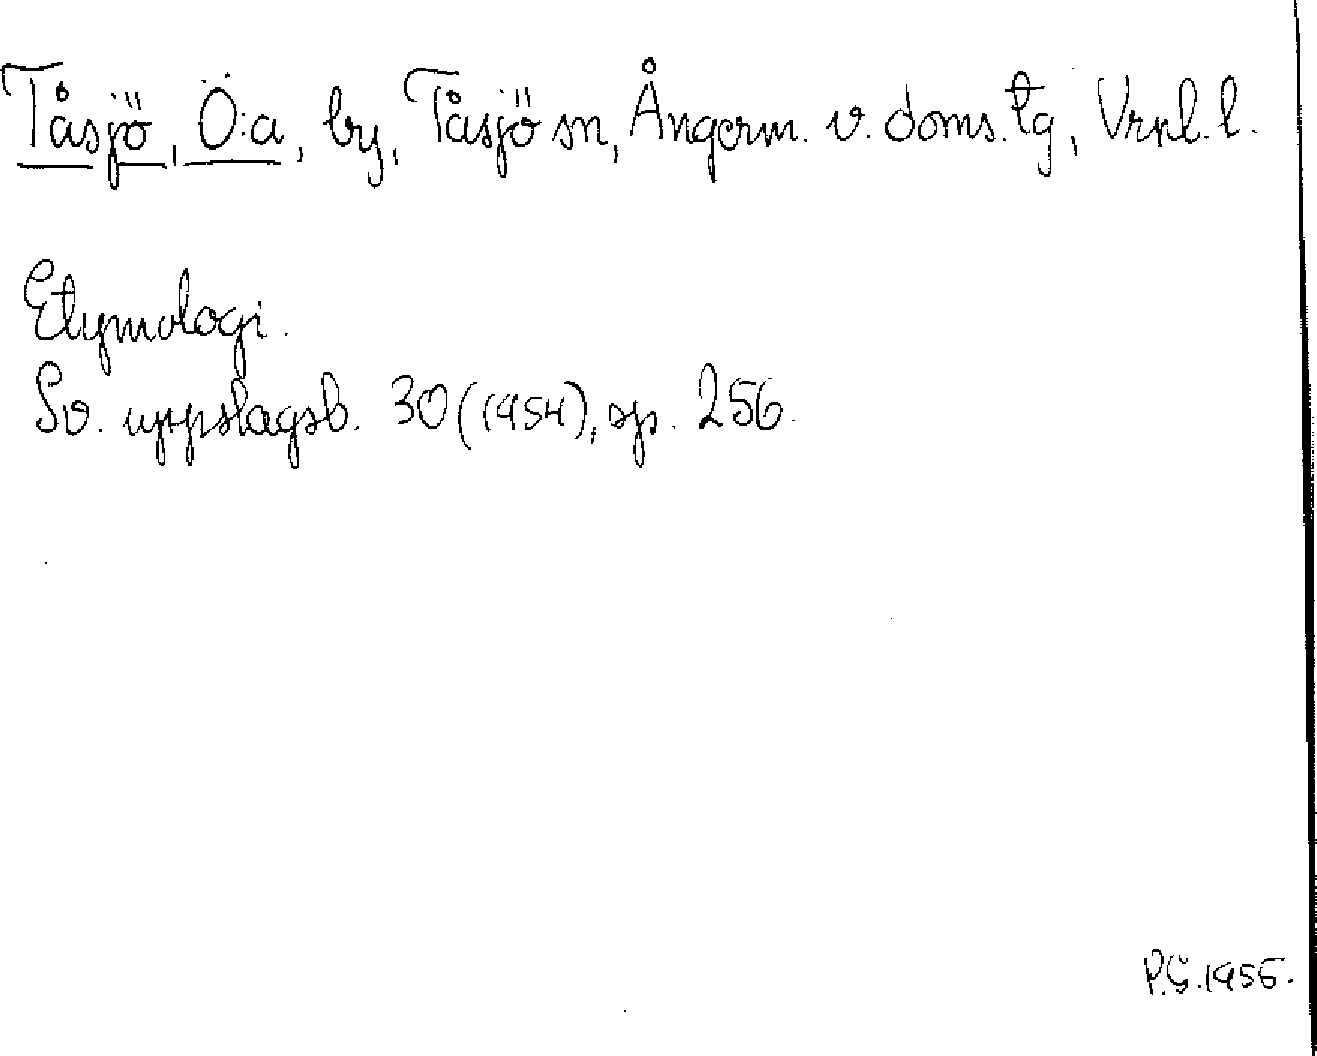 Tåsjö, Ö:a, by, Tåsjö sn, Ångerm. v. doms. tg, Vrnl. l.
Etymologi.
Sv. uppslagsb. 30 (1954), sp. 256.
P.G. 1956.